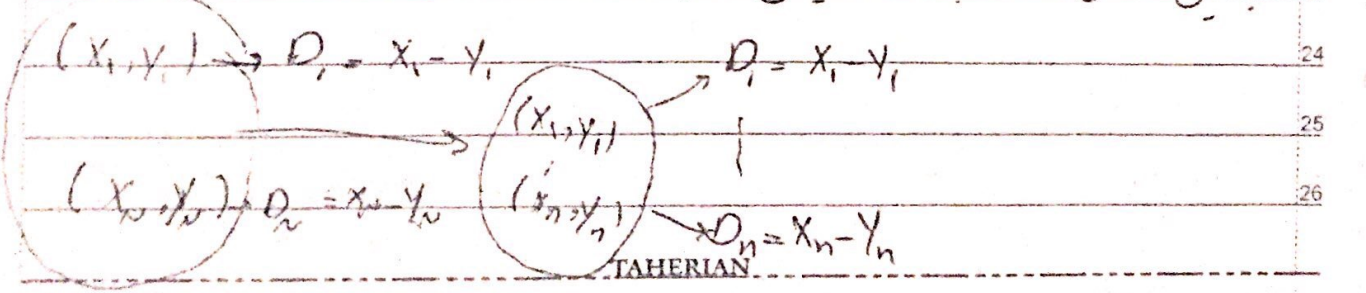 (X₁, Y₁) → D₁ = X₁ - Y₁ D₁ = X₁ - Y₁ 24
(X₁, Y₁) 25
(X_N, Y_N) → D_N = X_N - Y_N (X_n, Y_n) 26
D_n = X_n - Y_n
TAHERIAN